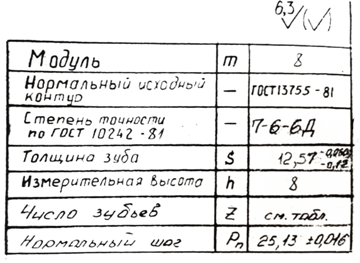 6,3 √(√)
Модуль m 8
Нормальный исходный
контур — ГОСТ13755-81
Степень точности
по ГОСТ 10242-81 — 7-6-6Д
Толщина зуба S 12,57
Измерительная высота h 8
Число зубьев Z см. табл.
Нормальный шаг Pn 25,13 ±0,016